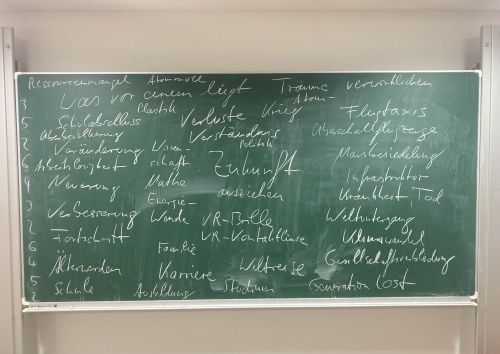 Ressourcenmangel Atommüll Träume verwirklichen
3 Was vor einem liegt Atom-
5 Schulabschluss Plastik Verluste Krieg Flugtaxis
2 Überbevölkerung Verständnis Überschallflugzeuge
2 Veränderung Wissen- Politik
6 Arbeitslosigkeit schaft Zukunft Marsbesiedelung
4 Neuerung Mathe ausziehen Infrastruktur
3 Energie- Krankheit, Tod
2 Verbesserung Wende VR-Brille Weltuntergang
6 Fortschritt VR-Kontaktlinse Klimawandel
4 Familie Gesellschaftsumbildung
Älterwerden Karriere Weltreise
5 Schule Ausbildung Studium Generation lost
2